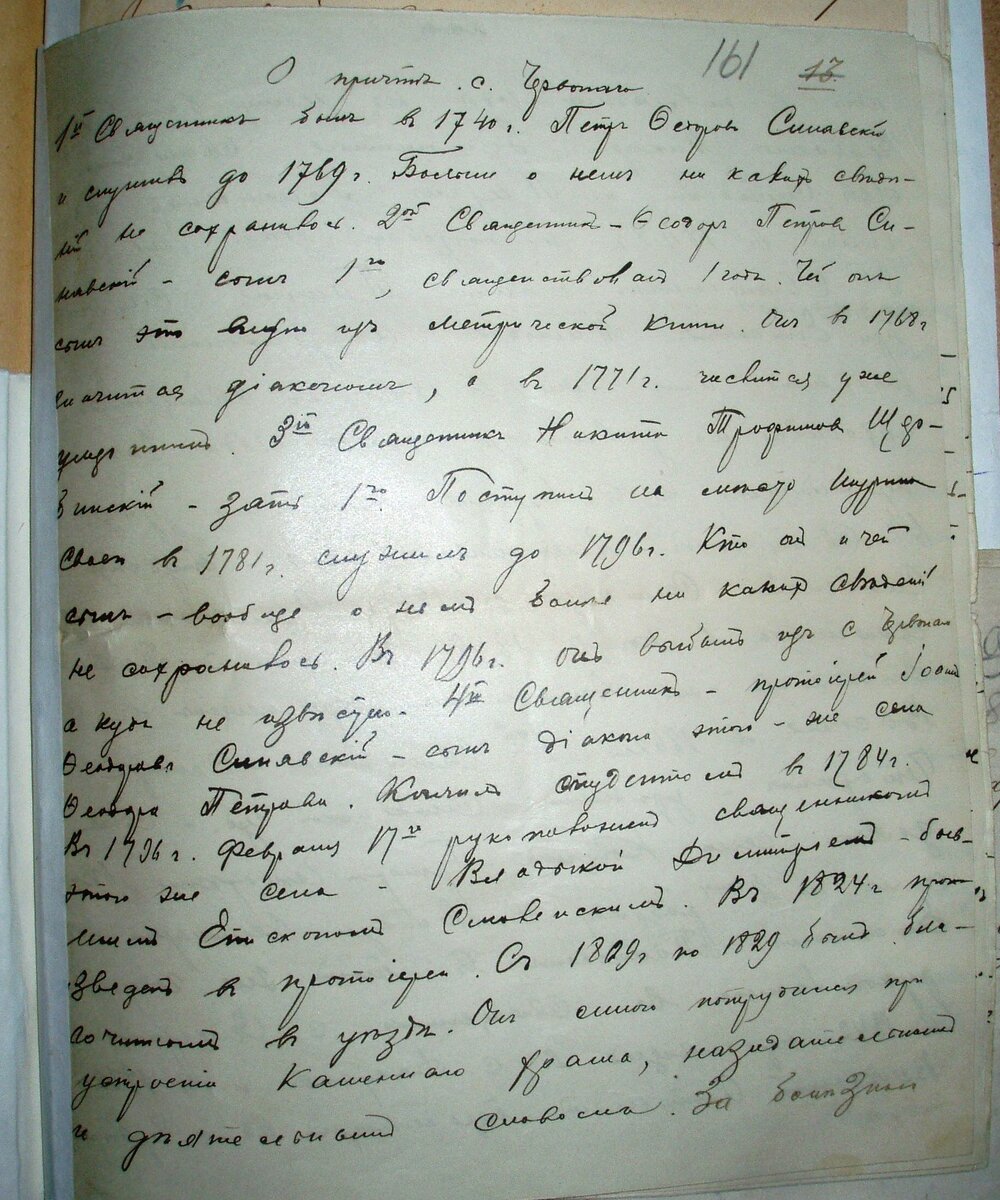 161 13
О причтѣ с. Чурвонаго
1й Священникъ былъ въ 1740 г. Петръ Ѳеодоровъ Синявскій
и служилъ до 1769 г. Больше о немъ ни какихъ свѣдѣ-
ній не сохранилось. 2ой Священникъ – Ѳеодоръ Петровъ Си-
нявскій – сынъ 1го, священствовалъ 1 годъ. Чей онъ
сынъ это видно изъ метрической книги. Онъ въ 1768 г
значится діакономъ, а въ 1771 г. числится уже
умершимъ. 3ій Священникъ Никита Трофимовъ
– зять 1го. Поступилъ на мѣсто шурина
своего въ 1781 г. служилъ до 1796 г. Кто онъ и чей
сынъ – вообще о немъ болѣе ни какихъ свѣдѣній
не сохранилось. Въ 1796 г. онъ выбылъ изъ с
а куда не извѣстно. 4й Священникъ – протоіерей Іоаннъ
Ѳеодоровъ Синявскій – сынъ діакона этого-же села
Ѳеодора Петрова. Кончилъ студентомъ въ 1784 г.
Въ 1796 г. Февраля 17го рукоположенъ священникомъ
этого же села – Владыкой Димитріемъ – быв-
шимъ Епископомъ Смоленскимъ. Въ 1824 г прои-
зведенъ въ протоіереи. Съ 1829 г по 1829 былъ бла-
гочиннымъ въ уѣздѣ. Онъ много потрудился при
устроеніи Каменнаго храма, назидательнымъ
и дѣятельнымъ словомъ. За болѣзнію